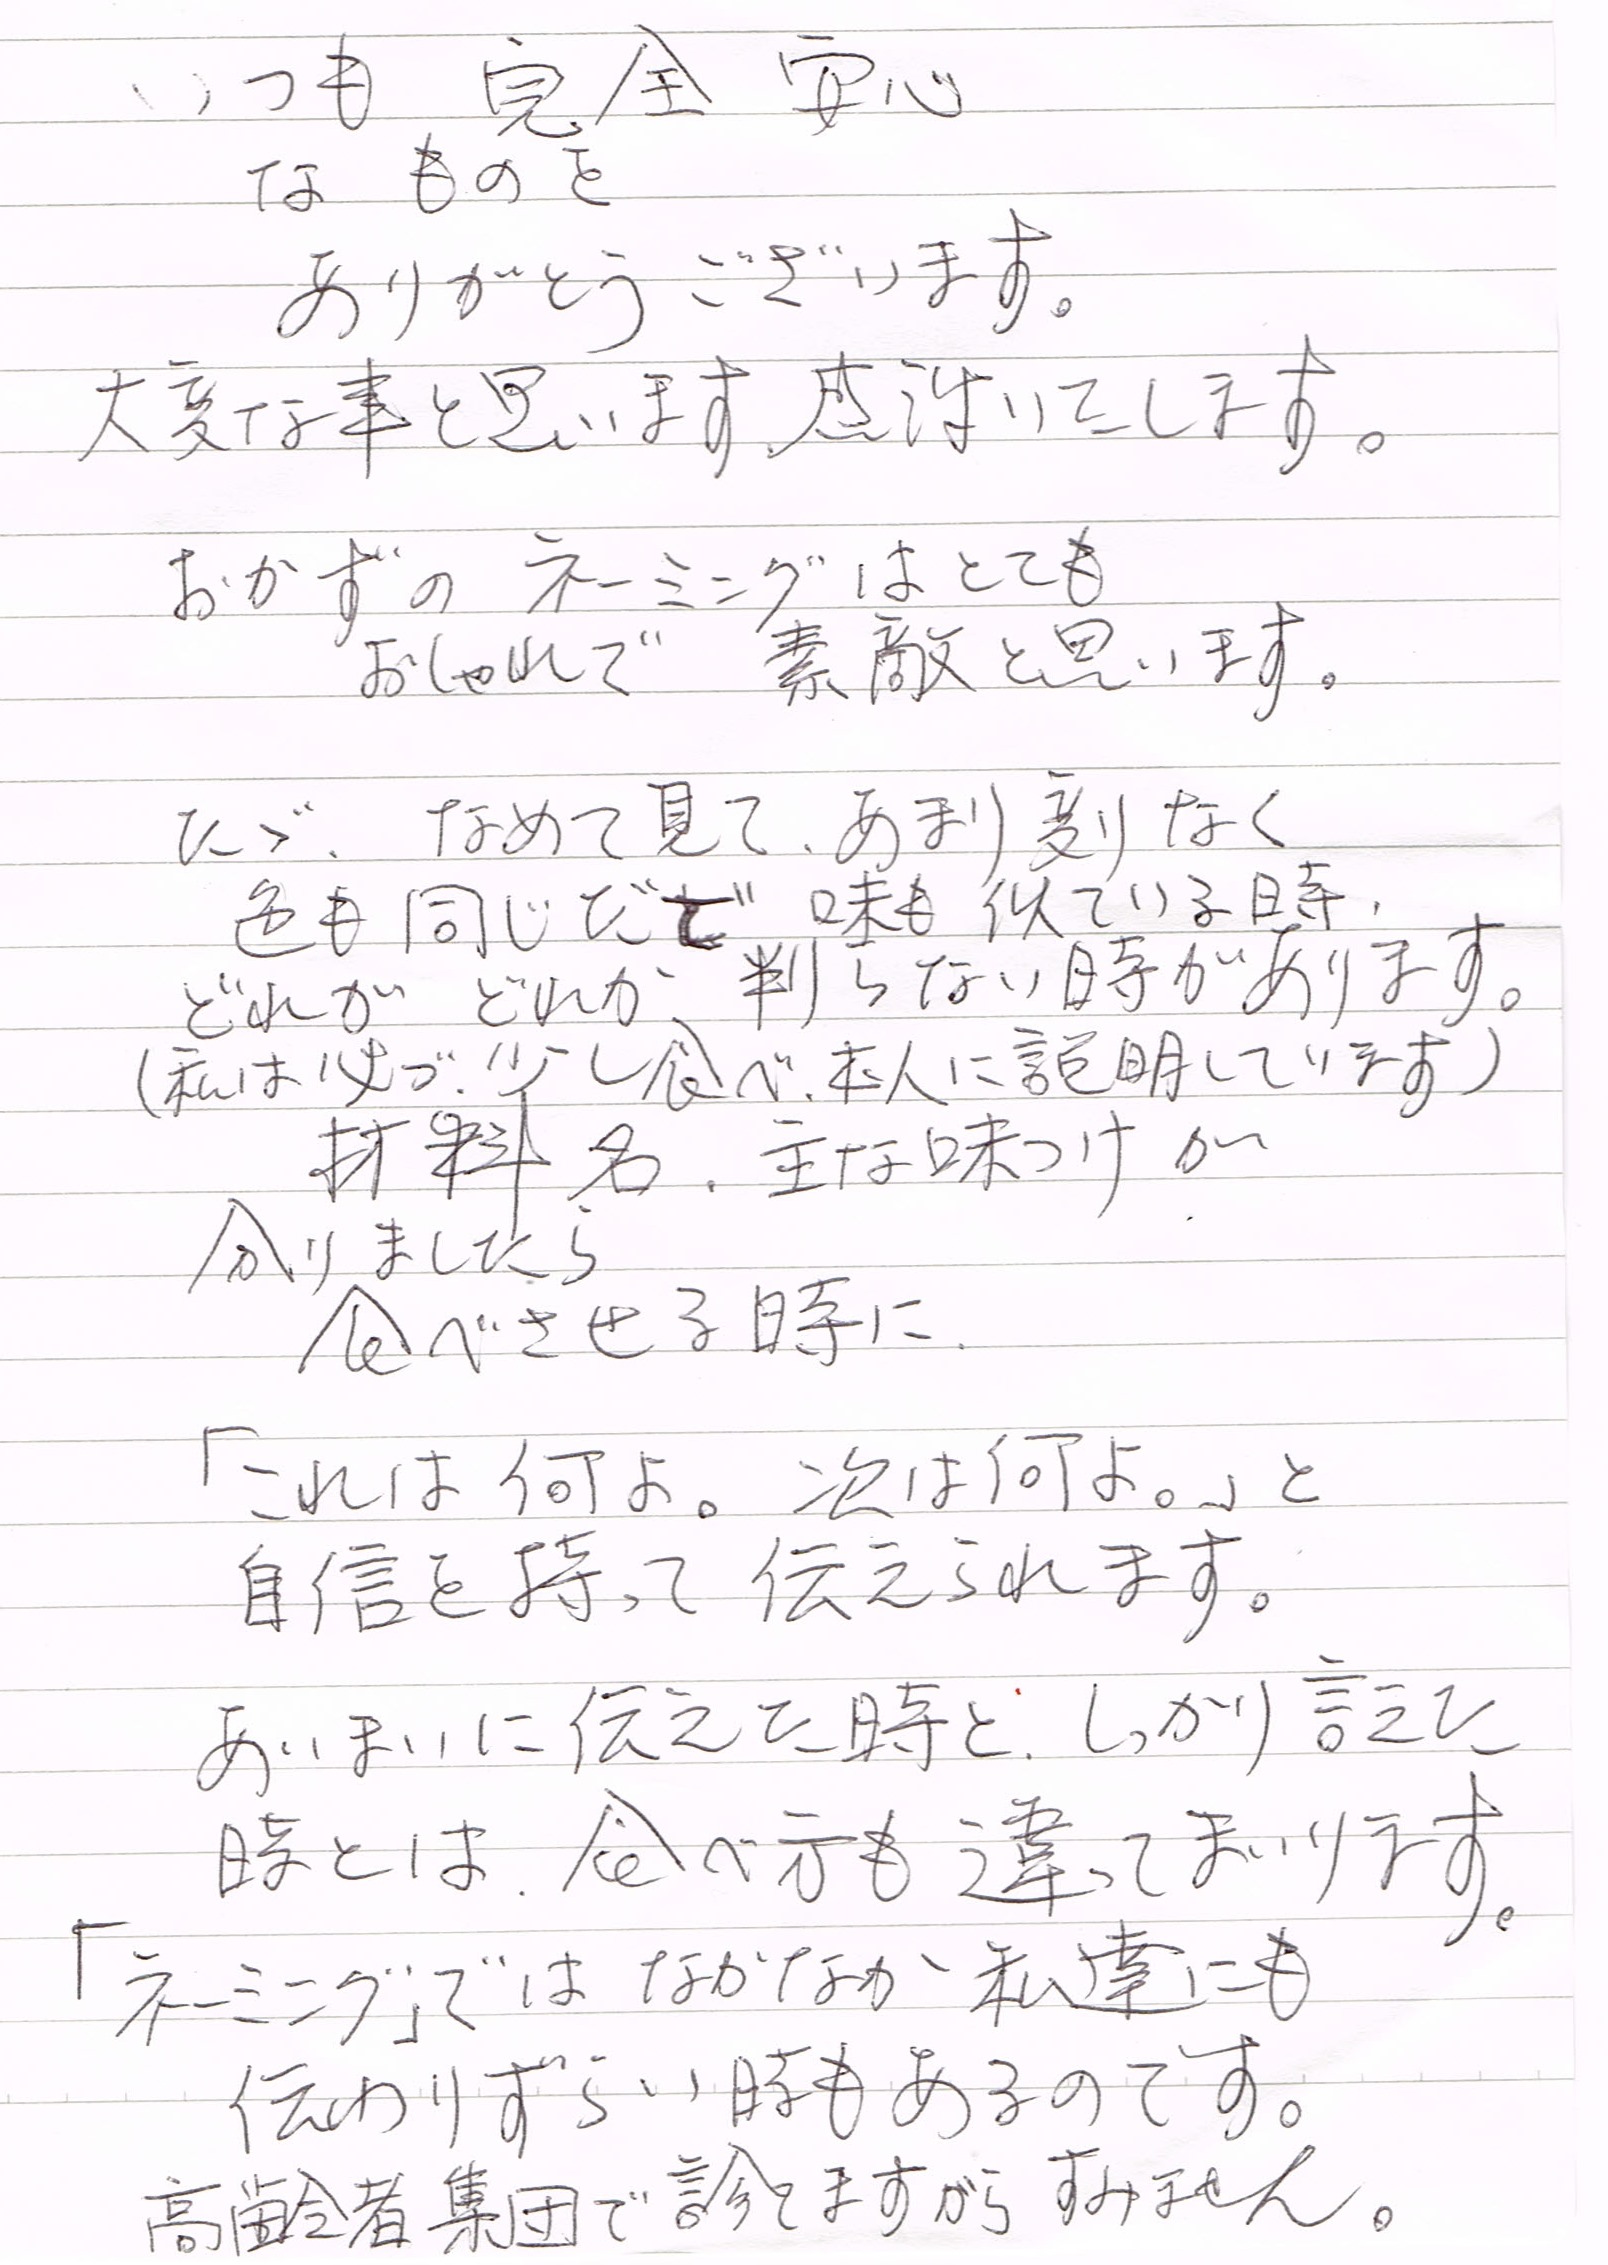 いつも 完全 安心
なものを
ありがとうございます。
大変な事と思います、感謝いたします。
おかずの ネーミングはとても
おしゃれで 素敵と思います。
たゞ、なめて見て、あまり変りなく
色も同じだで 味も似ている時、
どれが どれか、判らない時があります。
(私は必づ、少し食べ、本人に説明しています)
材料名、主な味つけが
分りましたら
食べさせる時に、
「これは何よ。次は何よ。」と
自信を持って 伝えられます。
あいまいに伝えた時と、しっかり言えた
時とは、食べ方も違ってまいります。
「ネーミング」では なかなか 私達にも
伝わりずらい時もあるのです。
高齢者集団で診てますがら すみません。